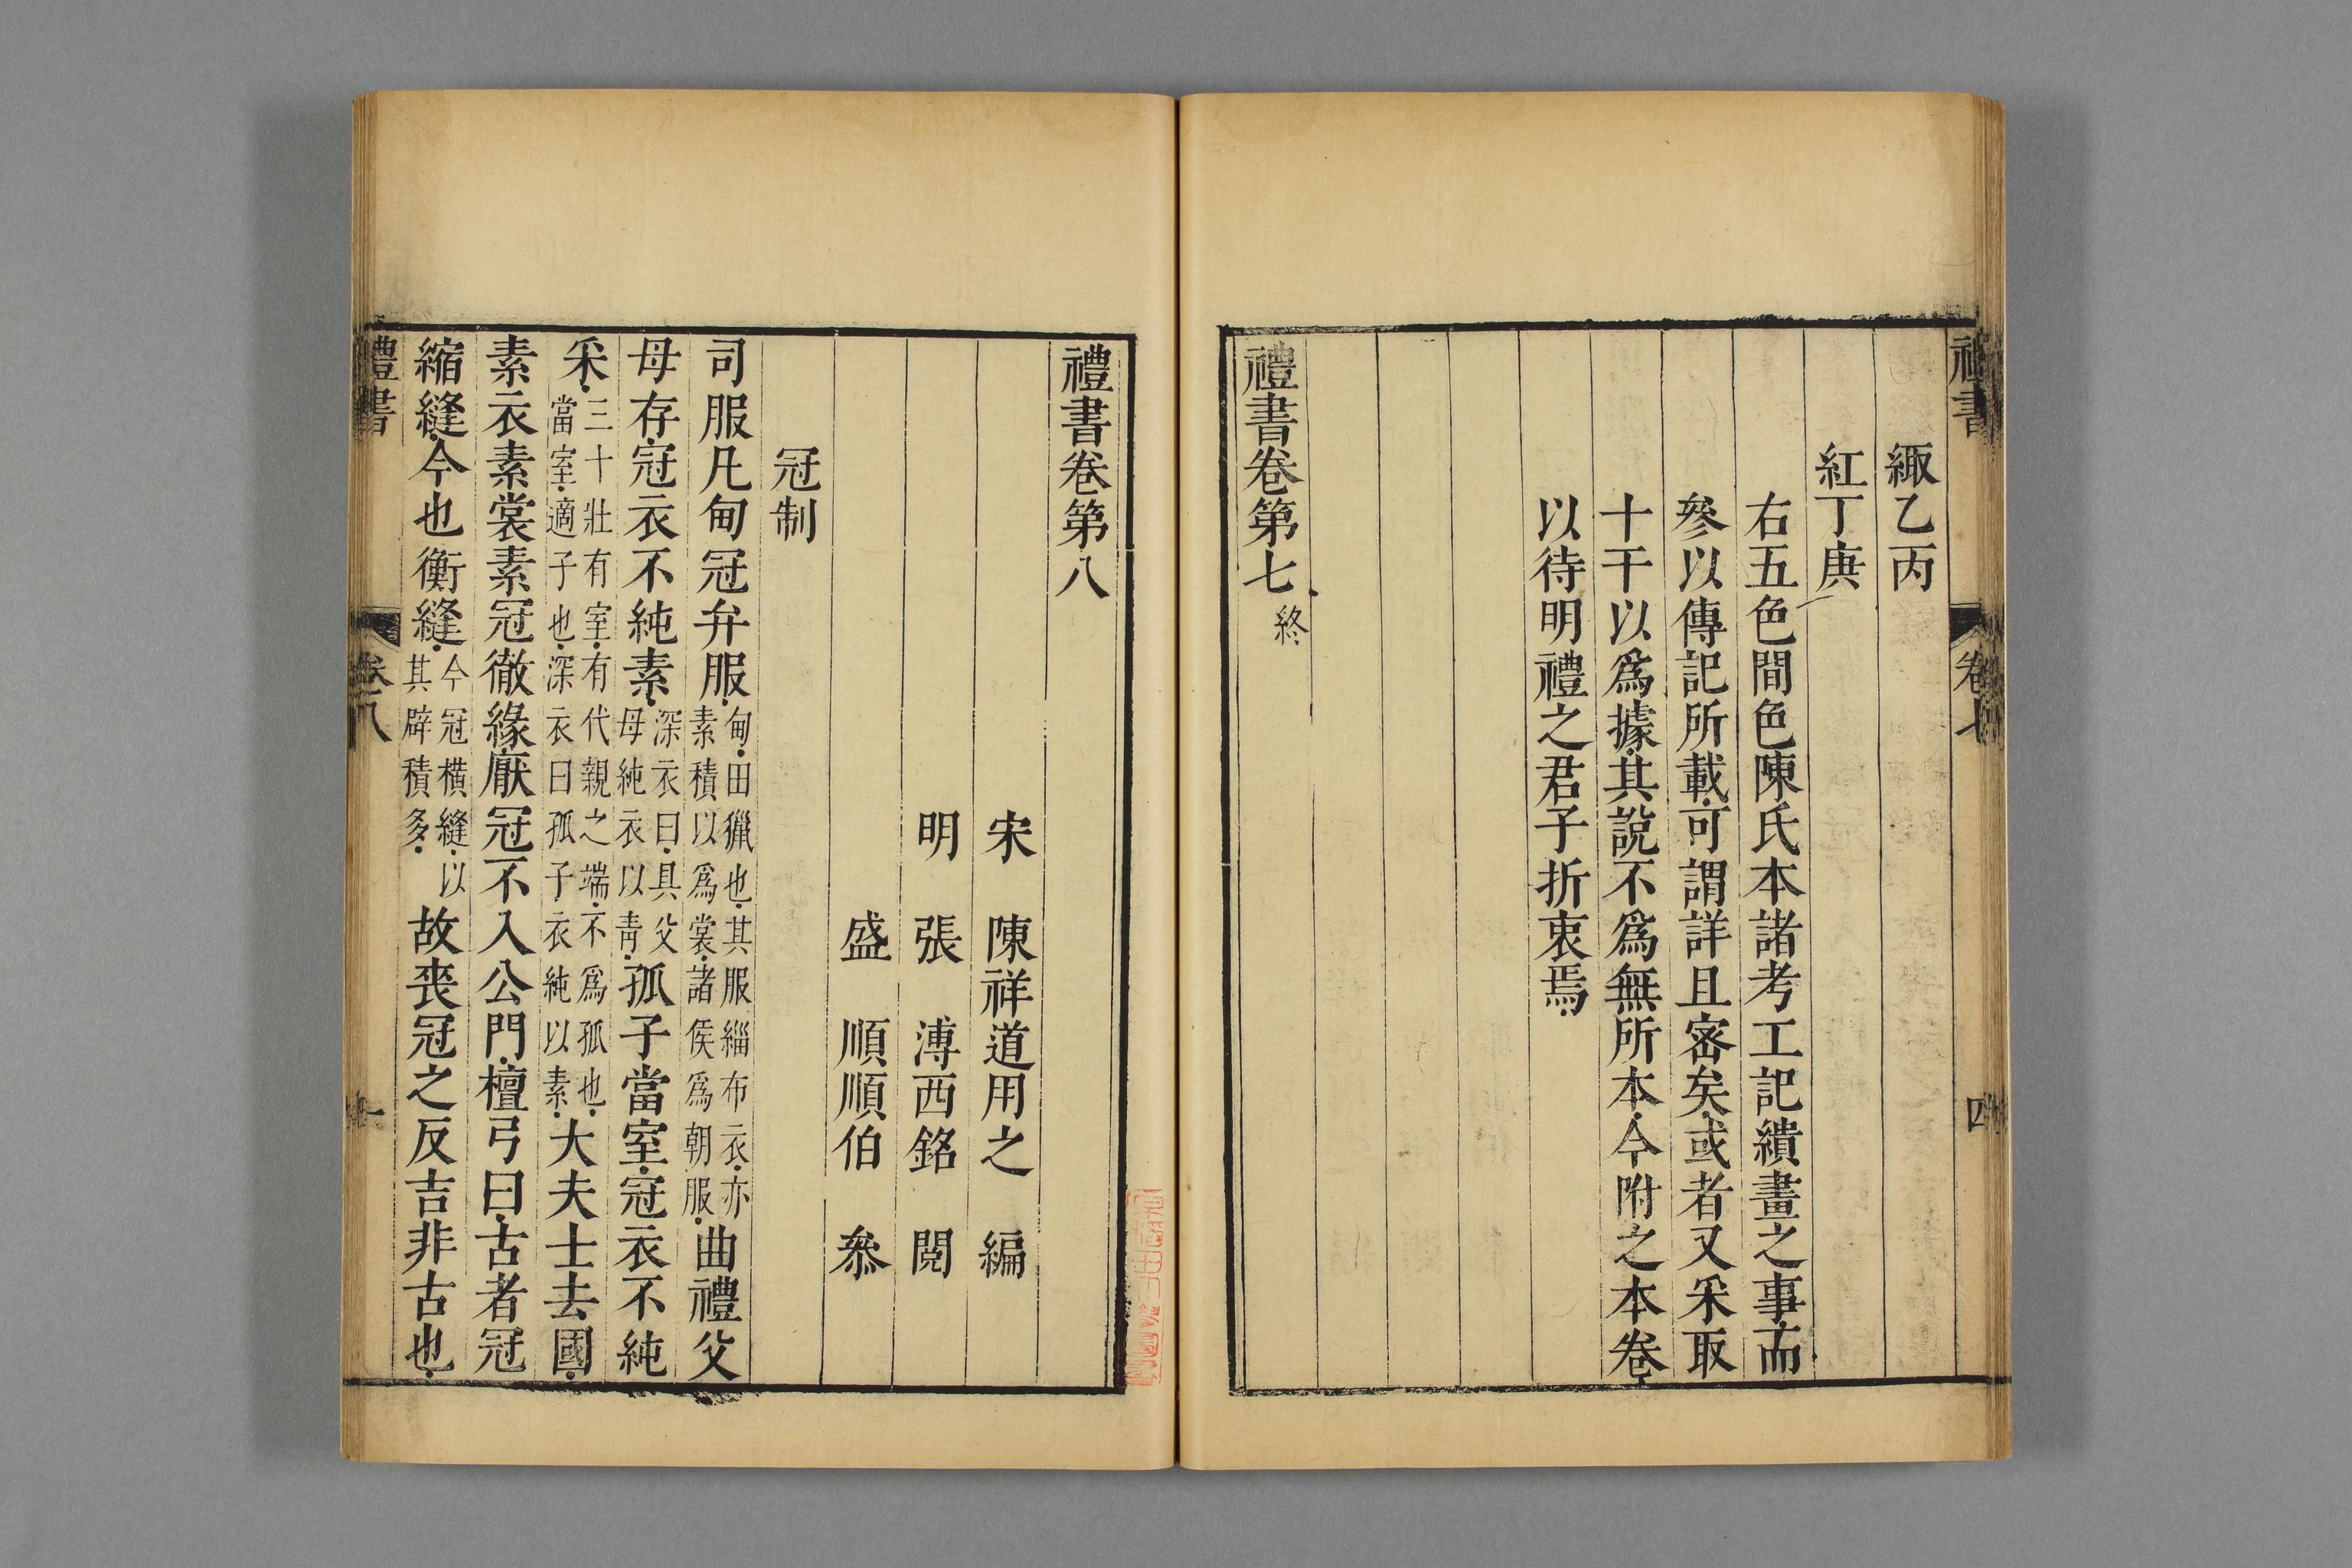 禮書
卷七
四
緅乙丙
紅丁庚
右五色間色陳氏本諸考工記繢畫之事而
叅以傳記所載可謂詳且密矣或者又采取
十干以爲據其說不爲無所本今附之本卷
以待明禮之君子折衷焉
禮書卷第七終
禮書卷第八
宋 陳祥道用之 編
明 張 溥西銘 閱
盛 順順伯 叅
冠制
司服凡甸冠弁服甸田獵也其服緇布衣亦素積以爲裳諸侯爲朝服曲禮父
母存冠衣不純素深衣曰具父母純衣以靑孤子當室冠衣不純
采三十壯有室有代親之端不爲孤也當室適子也深衣曰孤子衣純以素大夫士去國
素衣素裳素冠徹緣厭冠不入公門檀弓曰古者冠
縮縫今也衡縫今冠橫縫以其辟積多故喪冠之反吉非古也
禮書
卷八
一